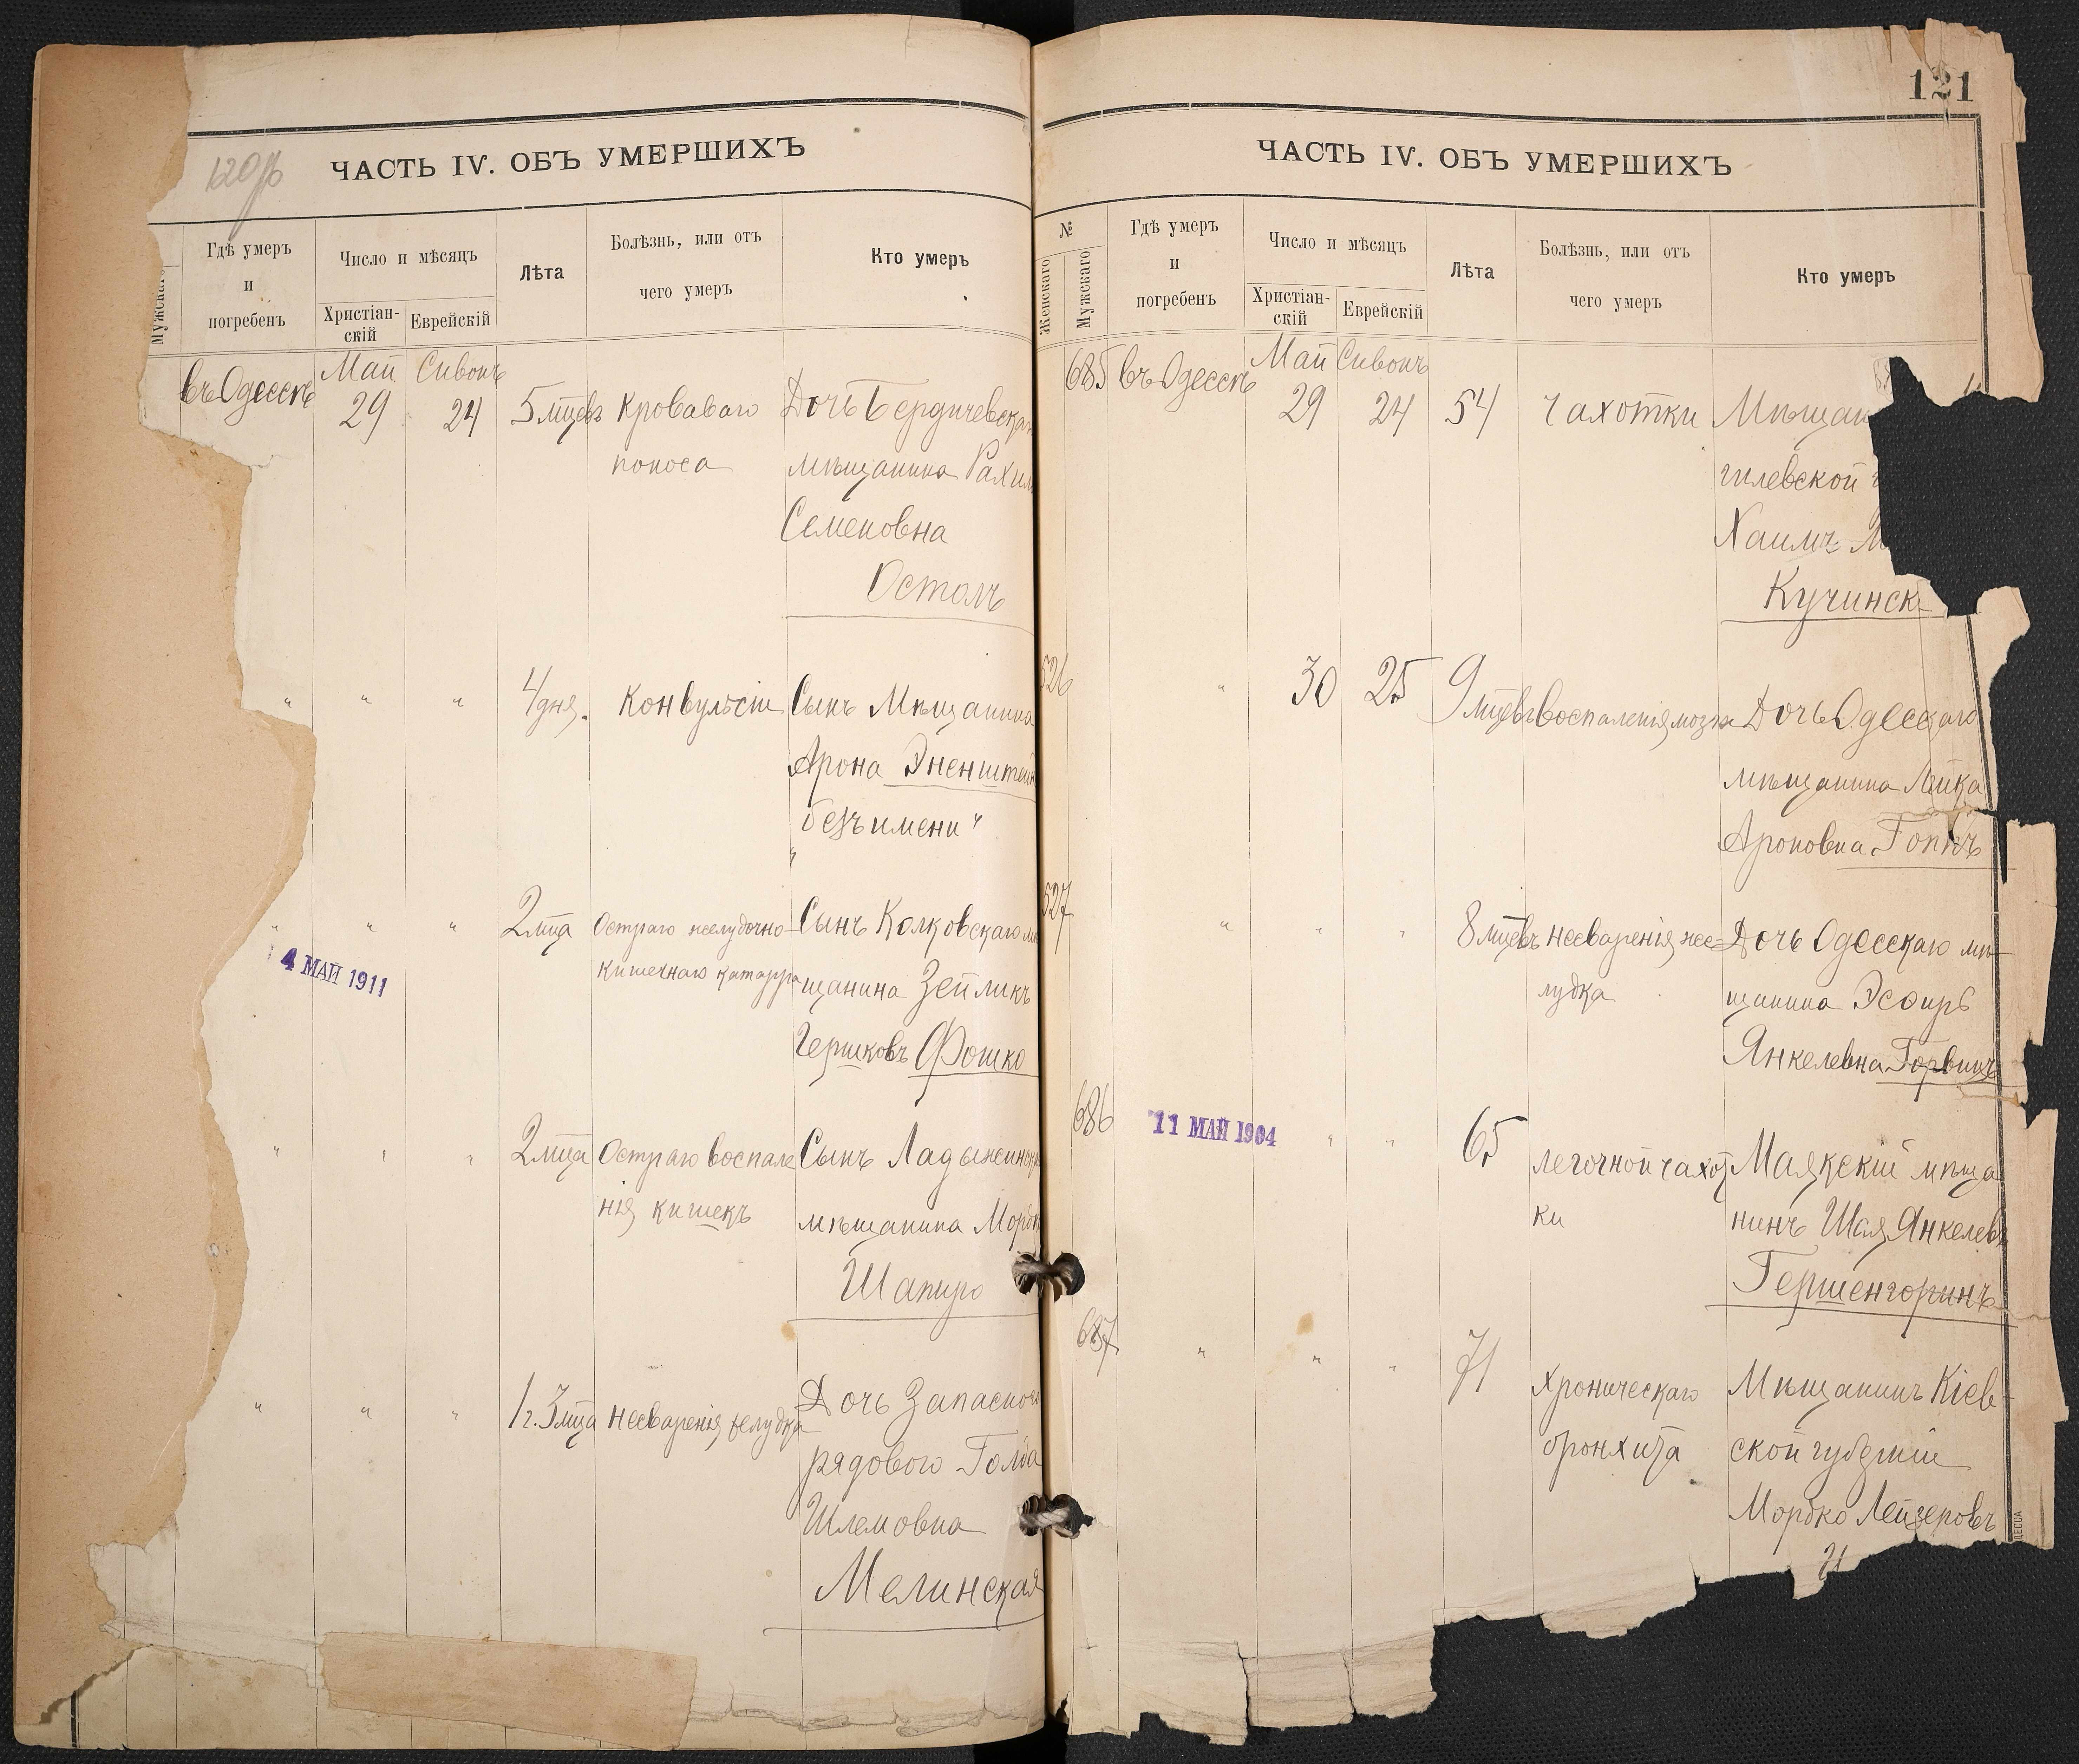 120об
ЧАСТЬ IV. ОБЪ УМЕРШИХЪ
Мужскаго
Гдѣ умеръ
и
погребенъ
Число и мѣсяцъ
Христіан-
скій
Еврейскій
Лѣта
Болѣзнь, или отъ
чего умеръ
Кто умеръ
въ Одессѣ
Май
29
Сивонъ
24
5 мцевъ
Кроваваго
поноса
Дочь Бердичевска
мѣщанина Рахил
Семеновна
Остолъ
" " "
4 дня.
Конвульсіи
Сынъ Мѣщанина
Арона Эненштейн
безъ имени "
" " "
2 мца
Остраго желудочно-
кишечнаго катарра
Сынъ Колковскаго мѣ
щанина Зейликъ
Гершковъ Фошко
4 МАЙ 1911
" " "
2 мца
Остраго воспале
нія кишекъ
Сынъ Ладыжинск
мѣщанина Мордк
Шапиро
" " "
1 г. 3 мца
несваренія желудка
Дочь Запаснаго
рядового Голда
Шлемовна
Мелинская
121
ЧАСТЬ IV. ОБЪ УМЕРШИХЪ
№
Женскаго
Мужскаго
Гдѣ умеръ
и
погребенъ
Число и мѣсяцъ
Христіан-
скій
Еврейскій
Лѣта
Болѣзнь, или отъ
чего умеръ
Кто умеръ
685
въ Одессѣ
Май
29
Сивонъ
24
54
Чахотки
Мѣщан
гилевской
Хаимъ М
Кучинск
526
"
30
25
9 мцевъ
воспаленія мозга
Дочь Одесскаго
мѣщанина Лейка
Ароновна
527
" " "
8 мцевъ
несваренія же=
лудка
Дочь Одесскаго мѣ-
щанина Эсѳирь
Янкелевна Горвицъ
686
11 МАЙ 1904
" "
65
легочной чахот
ки
Маякскій мѣща
нинъ Шая Янкелевъ
Гершенгоринъ
687
" " "
71
Хроническаго
бронхита
Мѣщанинъ Кіев-
ской губерніи
Мордко Лейзеровъ
ДЕССА